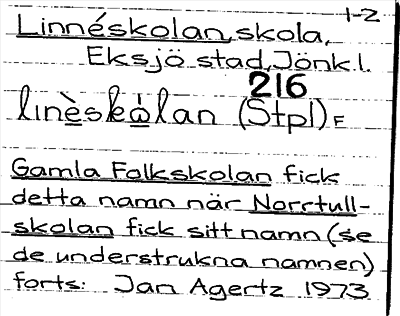 1-2
Linnéskolan, skola,
Eksjö stad, Jönk.l.
216
linèskòlan (Stpl) F
Gamla Folkskolan fick
detta namn när Norrtull-
skolan fick sitt namn (se
de understrukna namnen)
forts: Jan Agertz 1973